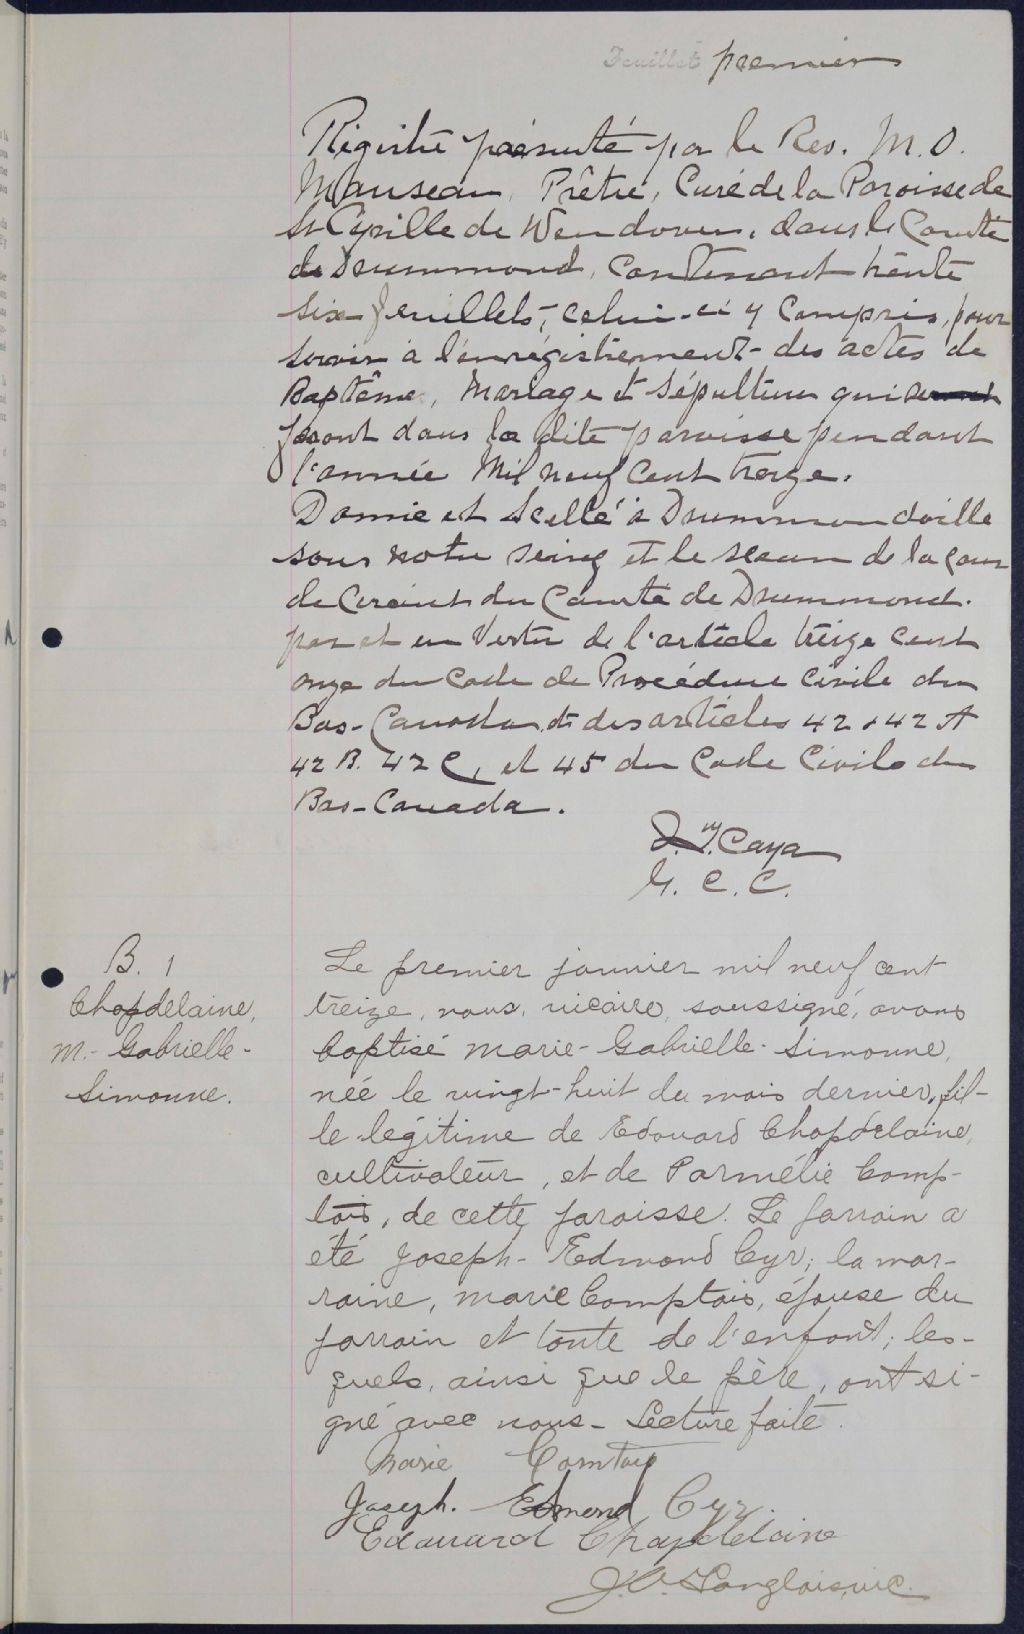 Feuillet premier
Régistre présenté par le Rev. M. O.
Manseau, Prêtre, Curé de la Paroisse de
St Cyrille de Wendover, dans le Comté
de Drummond, contenant trente
six feuillets, celui-ci y compris, pour
servir à l'enrégistrement des actes de
Baptême, Mariage et Sépulture qui se
feront dans la dite paroisse pendant
l'année Mil neuf Cent treize.
Donné et Scellé à Drummondville
sous notre seing et le sceau de la Cour
de Circuit du Comté de Drummond.
par et en Vertu de l'article treize cent
onze du Code de Procédure Civile du
Bas-Canada et des articles 42, 42 A
42 B. 42 C, et 45 du Code Civile du
Bas-Canada.
Caya
G. C. C.
B. 1
Chapdelaine,
M.-Gabrielle-
Simonne.
Le premier janvier mil neuf cent
treize, nous, vicaire, soussigné, avons
baptisé Marie-Gabrielle-Simonne,
née le vingt-huit du mois dernier, fil-
le légitime de Edouard Chapdelaine,
cultivateur, et de Parmélie Comp-
tois, de cette paroisse. Le parrain a
été Joseph-Edmond Cyr; la mar-
raine, Marie Comptois, épouse du
parrain et tante de l'enfant; les-
quels, ainsi que le père, ont si-
gné avec nous. Lecture faite.
Marie Comtois
Joseph. Edmond Cyr.
Edouard Chapdelaine
J. O. Langlois, vic.